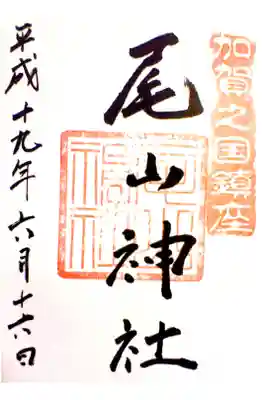 加賀之国鎮座
尾山神社
尾山神社
平成十九年六月十六日